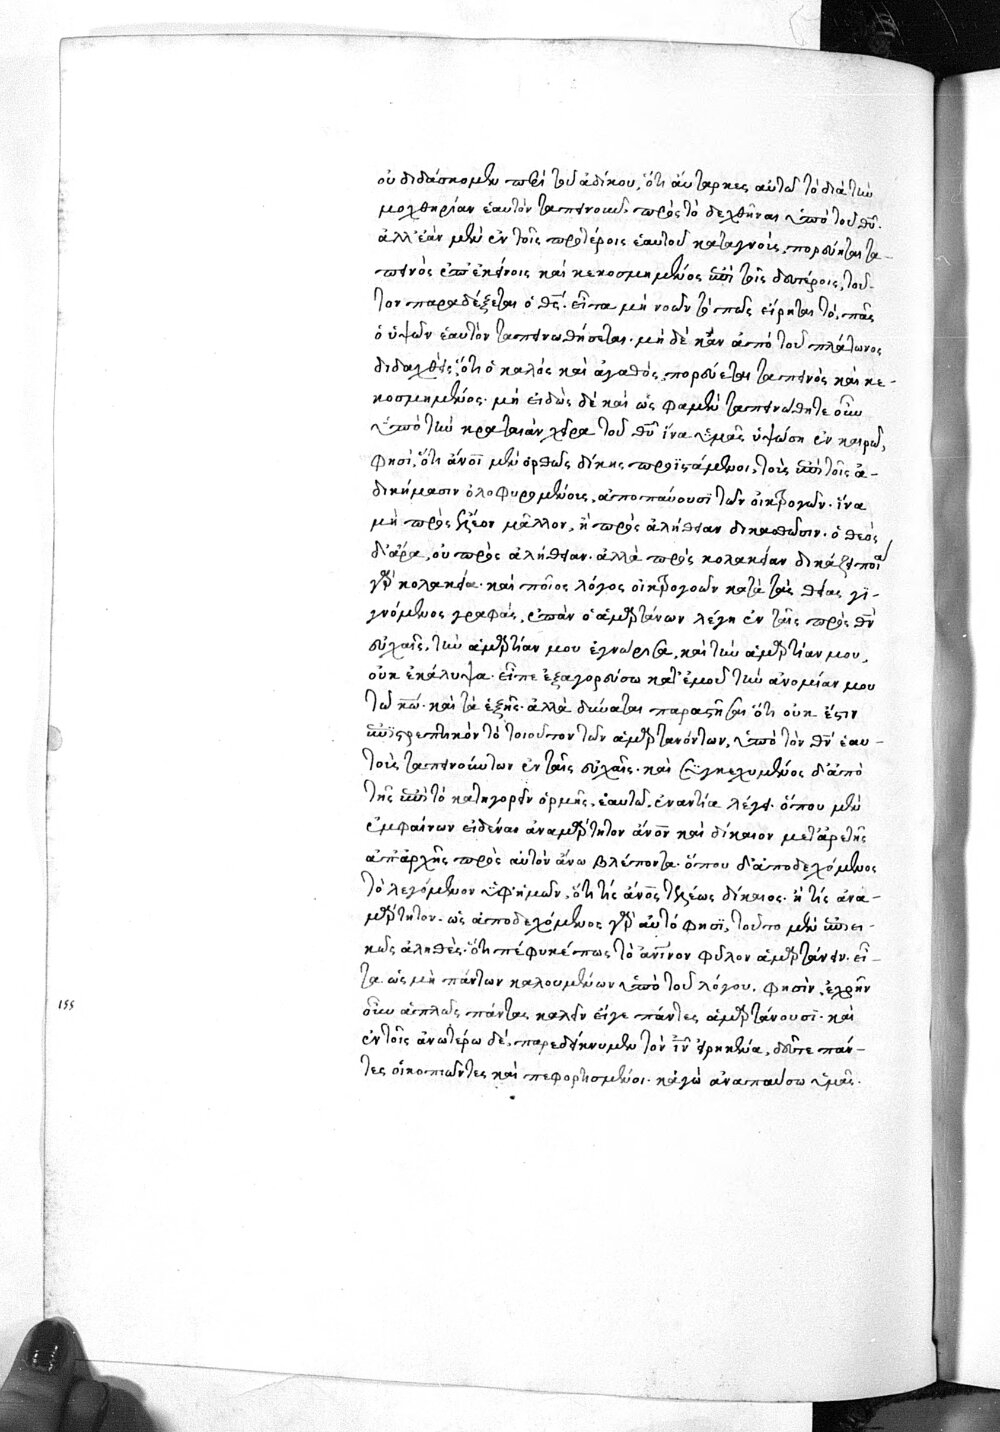 οὐ διδάσκομεν περὶ τοῦ ἀδίκου, ὅτι αὔταρκες αὐτῶ τὸ διὰ τὴν
μοχθηρίαν ἑαυτὸν ταπεινοῦν πρὸς τὸ δεχθῆναι ὑπὸ τοῦ θῦ.
ἀλλ' ἐὰν μὲν ἐν τοῖς προτέροις ἑαυτοῦ καταγνοὺς, πορεύηται τα-
πεινὸς ἐπ' ἐκείνοις καὶ κεκοσμημένος ἐπὶ τοῖς δευτέροις, τοῦ-
τον παραδέξεται ὁ θς. εἶτα μὴ νοῶν πῶς εἴρηται τὸ, πᾶς
ὁ ὑψῶν ἑαυτὸν ταπεινωθήσεται. μὴ δὲ κἂν ἀπὸ τοῦ πλάτωνος
διδαχθεὶς, ὅτι ὁ καλὸς καὶ ἀγαθὸς, πορεύεται ταπεινὸς καὶ κε-
κοσμημένος. μὴ εἰδὼς δὲ καὶ ὡς φαμὲν ταπεινώθητε οὖν
ὑπὸ τὴν κραταιὰν χεῖρα τοῦ θῦ ἵνα ὑμᾶς ὑψώση ἐν καιρῶ,
φησὶ, ὅτι ἄνοι μὲν ὀρθῶς δίκης προϊστάμενοι, τοὺς ἐπὶ τοῖς ἀ-
δικήμασιν ὀλοφυρομένους, ἀποπαύουσϊ τῶν οἰκτρογόων. ἵνα
μὴ πρὸς ἔλεον μᾶλλον, ἢ πρὸς ἀλήθειαν δικασθῶσιν. ὁ θεὸς
δ' ἄρα, οὐ πρὸς ἀλήθειαν. ἀλλὰ πρὸς κολακείαν δικάζει ποία
γὰρ κολακεία. καὶ ποῖος λόγος οἰκτρογοῶν κατὰ τὰς θείας γϊ-
γνόμενος γραφάς, ἐπὰν ὁ ἁμαρτάνων λέγη ἐν ταῖς πρὸς θν
εὐχαῖς, τὴν ἁμαρτίαν μου ἐγνώρισα, καὶ τὴν ἁμαρτίαν μου,
οὐκ ἐκάλυψα. εἶπα ἐξαγορεύσω κατ' ἐμοῦ τὴν ἀνομίαν μου
τῶ κω. καὶ τὰ ἑξῆς. ἀλλὰ δύναται παραστῆσαι ὅτι οὐκ ἔστιν
ἐπϊστρεπτικὸν τὸ τοιοῦτον τῶν ἁμαρτανόντων, ὑπὸ τὸν θν ἑαυ-
τοὺς ταπεινούντων ἐν ταῖς εὐχαῖς. καὶ συγκεχυμένος δ' ἀπὸ
τῆς ἐπὶ τὸ κατηγορεῖν ὁρμῆς, ἑαυτῶ ἐναντία λέγει. ὅπου μὲν
ἐμφαίνων εἰδέναι ἀναμάρτητον ἄνον καὶ δίκαιον μετ' ἀρετῆς
ἀπ' ἀρχῆς πρὸς αὐτὸν ἄνω βλέποντα. ὅπου δ' ἀποδεχόμενος
τὸ λεγόμενον ὑφ' ἡμῶν, ὅτι τίς ἄνος τελέως δίκαιος. ἢ τίς ἀνα-
μάρτητον. ὡς ἀποδεχόμενος γὰρ αὐτό φησϊ, τοῦτο μὲν ἐπιει-
κῶς ἀληθὲς. ὅτι πέφυκέ πως τὸ ἀνινον φῦλον ἁμαρτάνειν. εἶ-
τα ὡς μὴ πάντων καλουμένων ὑπὸ τοῦ λόγου, φησὶν, ἐχρῆν
οὖν ἁπλῶς πάντας καλεῖν εἴγε πάντες ἁμαρτάνουσϊ. καὶ
ἐν τοῖς ἀνωτέρω δὲ, παρεδείκνυμεν τὸν ιν εἰρηκέναι, δεῦτε πάν-
τες οἱ κοπιῶντες καὶ πεφορτισμένοι. κἀγὼ ἀναπαύσω ὑμᾶς.
155